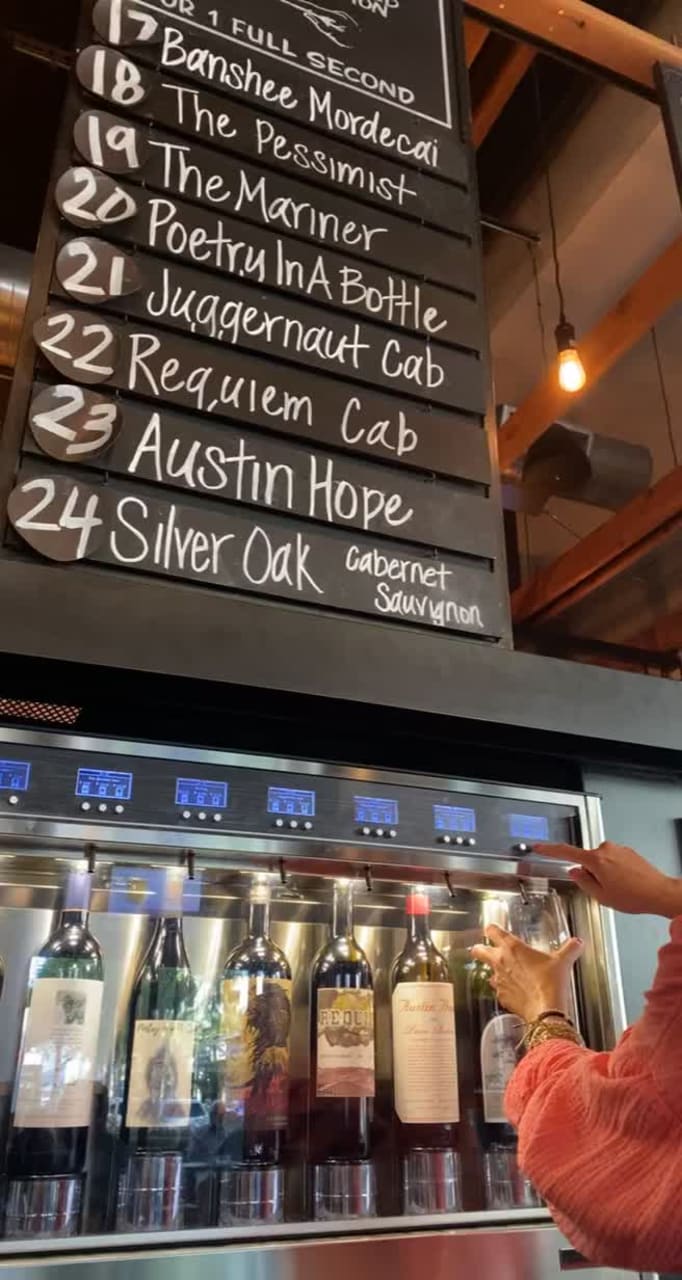 OR 1 FULL SECOND
17 Banshee Mordecai
18 The Pessimist
19 The Mariner
20 Poetry In A Bottle
21 Juggernaut Cab
22 Requiem Cab
23 Austin Hope
24 Silver Oak Cabernet
Sauvignon
REQUI
Austin